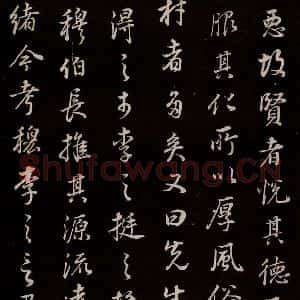 惡故賢者悅其德不
服其化所以厚風俗
材者多矣又曰先生
得之于李之挺之
穆伯長推其源流遠
緒今考穆李之言
Shufawang.CN